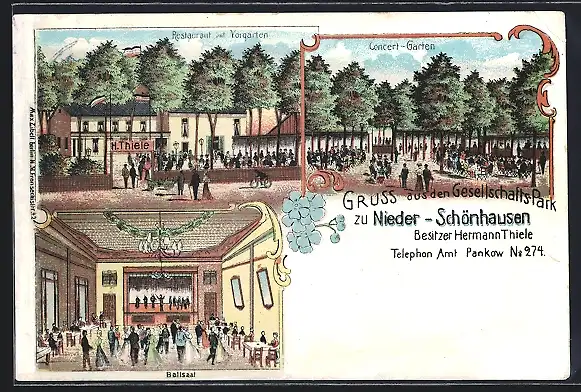 Restaurant mit Vorgarten
Concert-Garten
H. Thiele
GRUSS aus den Gesellschafts Park
zu Nieder-Schönhausen
Besitzer Hermann Thiele
Telephon Amt Pankow No 274.
Ballsaal